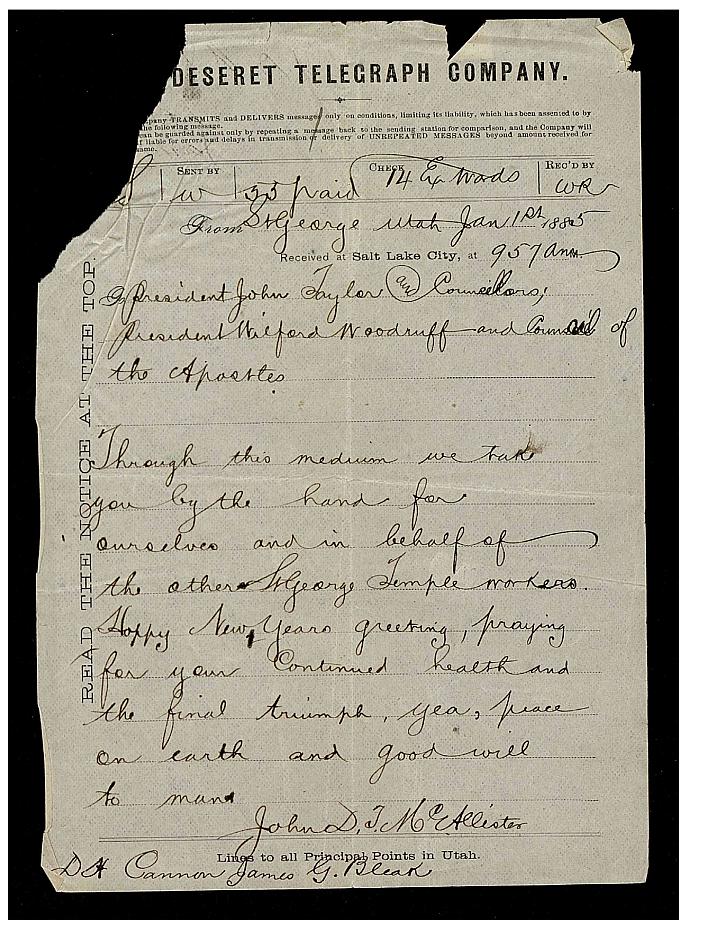 DESERET TELEGRAPH COMPANY.
pany TRANSMITS and DELIVERS messages only on conditions, limiting its liability, which has been assented to by
the following message.
can be guarded against only by repeating a message back to the sending station for comparison, and the Company will
liable for errors and delays in transmission or delivery of UNREPEATED MESSAGES beyond amount received for
ame.
SENT BY CHECK REC'D BY
W 33 paid 14 Ex Words WR
From St George Utah Jan 1st 1885
Received at Salt Lake City, at 957 am
President John Taylor and Councellors,
President Wilford Woodruff and Council of
the Apostles
Through this medium we take
you by the hand for
ourselves and in behalf of
the other St George Temple workers.
Happy New Years greeting, praying
for your Continued health and
the final triumph, yea, peace
on earth and good will
to man
John D. T. McAllister
Lines to all Principal Points in Utah.
D H Cannon James G. Bleak
READ THE NOTICE AT THE TOP.